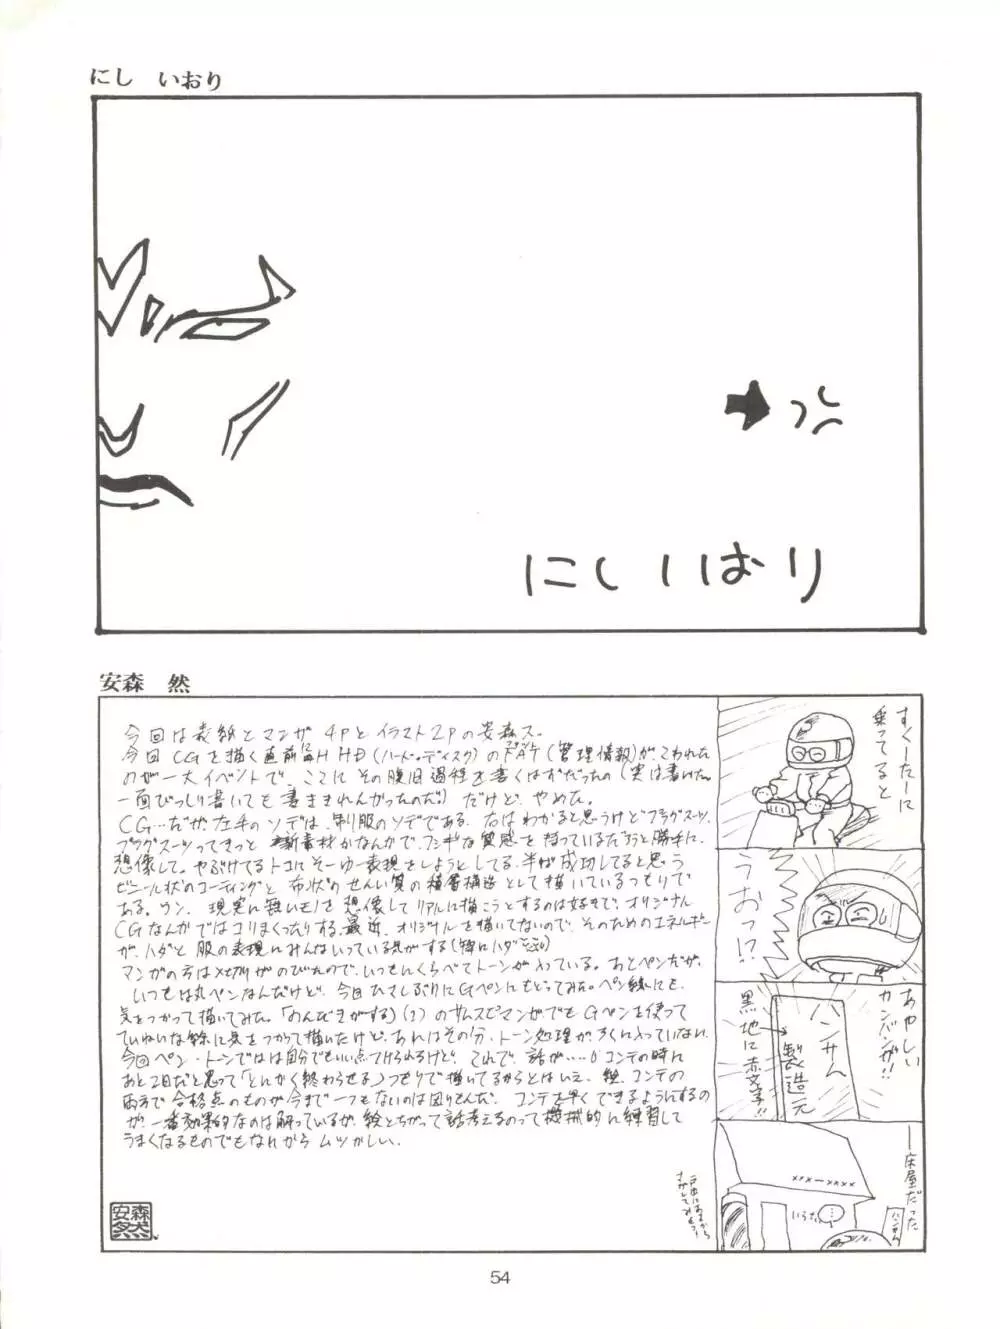 にし　いおり
にし いおり
安森　然
今回は表紙とマンガ 4Pとイラスト2Pの安森ス。
今回 CGを描く直前に HD(ハード・ディスク)のFAT(管理情報)が、こわれた
のが一大イベントで、ここに その復旧過程を書くはずだったの(実は書いた。
一面びっしり書いても書ききれんかったのだ!) だけど、やめた。
CG…だが、左手のソデは、制服のソデである。右はわかると思うけどプラグスーツ。
プラグスーツってきっと 新素材かなんかで、フシギな質感を持っているだろうと勝手に
想像して、やぶけてるトコにそーゆー表現をしようとしてる。半ば成功してると思う
ビニール状のコーティングと 布状のせんい質の積層構造として描いているつもりで
ある。ウン、現実に無いモノを想像してリアルに描こうとするのは好きで、オリジナル
CGなんかではコリまくったりする。最近、オリジナルを描いてないので、そのためのエネルギー
が、ハダと 服の表現にみんないっている気がする(特にハダ
マンガの方は〆切りがのびたので、いつもにくらべてトーンが入っている。あとペンだが、
いつもは丸ペンなんだけど、今回ひさしぶりにGペンにもどってみた。ペン線にも、
気をつかって描いてみた。「のんびきがする」(2)のサムスピマンガでもGペンを使って
ていねいな線に気をつかって描いたけど、あれはその分、トーン処理が、ろくに入っていない。
今回ペン・トーンでは自分でもいい点つけられるけど、これで、話が……。コンテの時に
あと2日だと思って「とにかく終わらせる」つもりで描いてるからとはいえ、絵、コンテの
両方で合格点のものが今まで一つもないのは困りもんだ。コンテを早くできるようにするの
が、一番効果的なのは解っているが、絵とちがって話考えるのって機械的に練習して
うまくなるものでもなれから ムツかしい。
安森然
すくーたーに
乗ってると
うおっ!?
あやしい
カンバンが!!
ハンサム
製造元
黒地に赤文字!!
―床屋だった
ハンサム
…
54